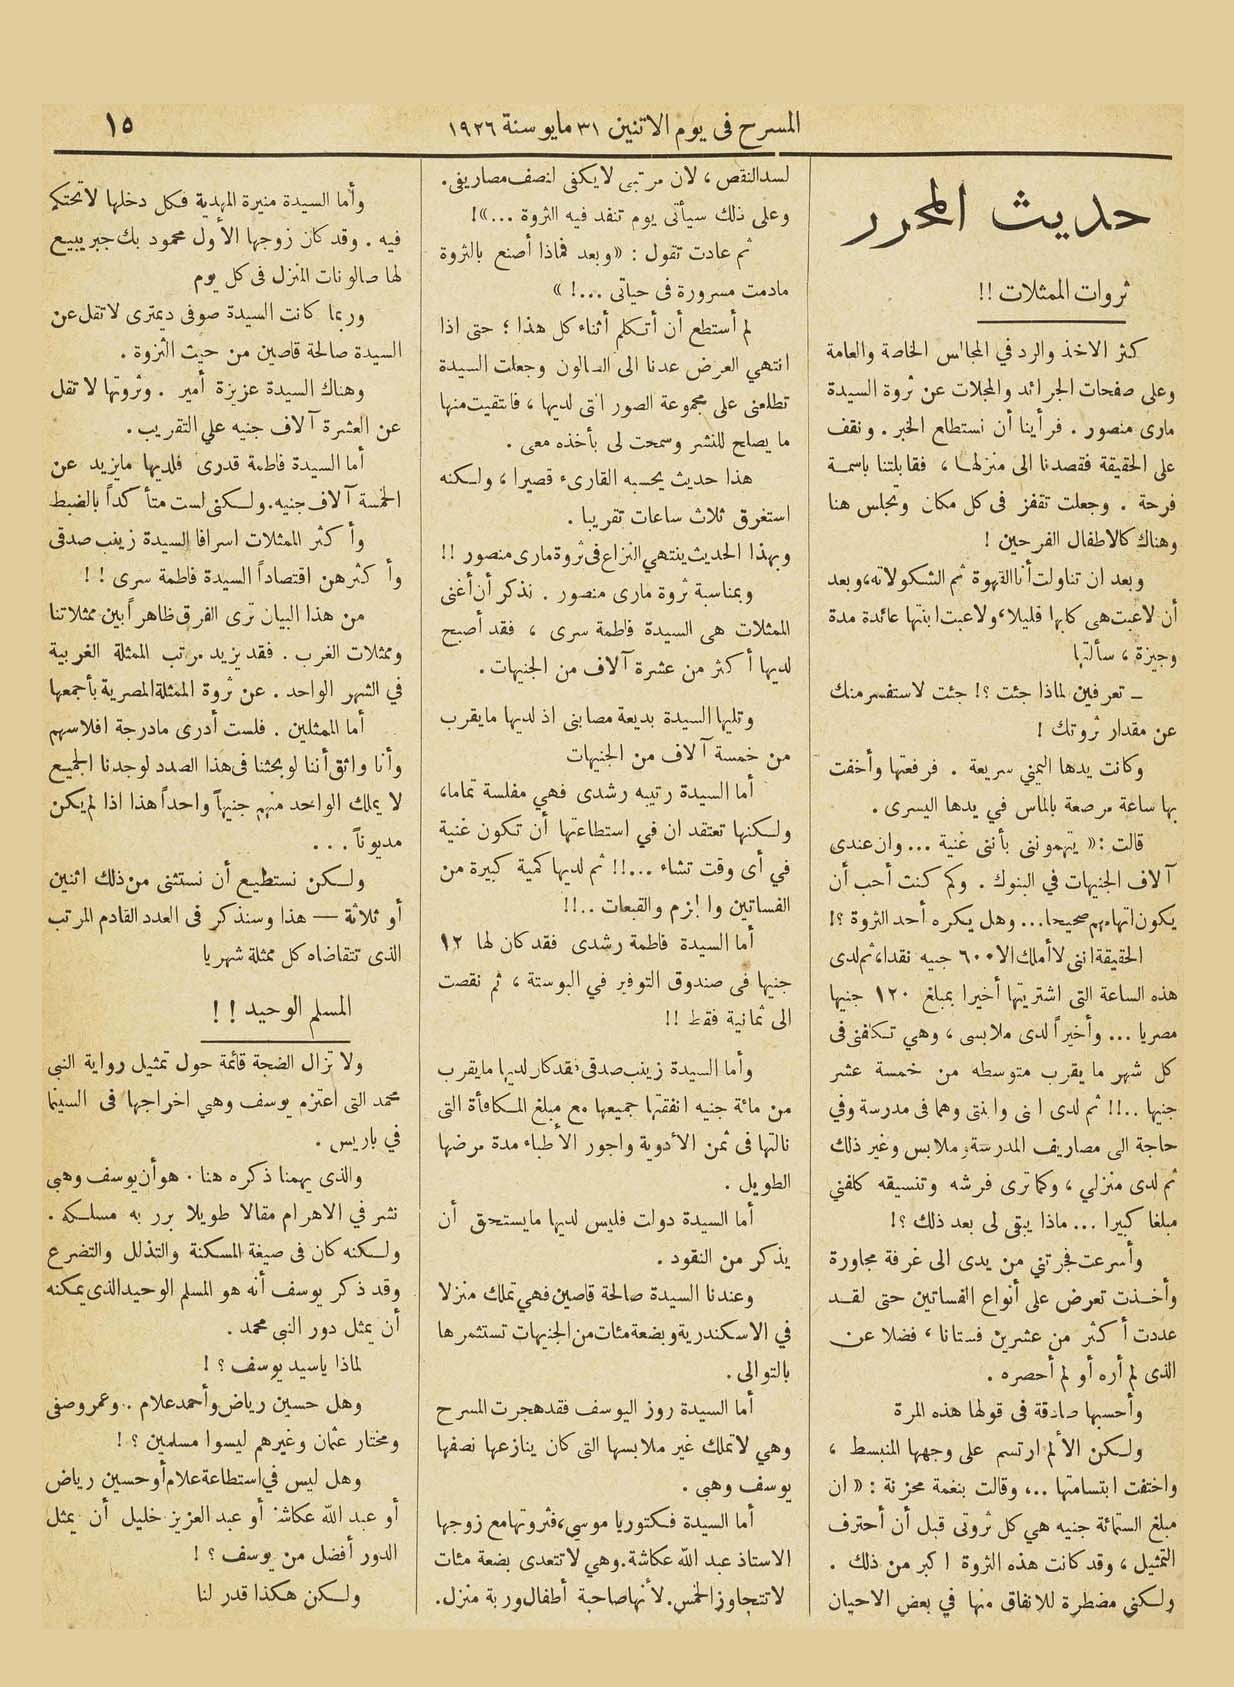 المسرح فى يوم الاثنين ٣١ مايو سنة ١٩٢٦
١٥
حديث المحرر
ثروات الممثلات !!
كثر الاخذ والرد في المجالس الخاصة والعامة
وعلى صفحات الجرائد والمجلات عن ثروة السيدة
مارى منصور . فرأينا أن نستطاع الخبر . ونقف
على الحقيقة فقصدنا الى منزلها ، فقابلتنا باسمة
فرحة . وجعلت تقفز فى كل مكان وتجلس هنا
وهناك كالاطفال الفرحين !
وبعد ان تناولت أنا القهوة ثم الشكولاته ، وبعد
أن لاعبت هى كلبها قليلا ، ولاعبت ابنتها عائدة مدة
وجيزة ، سألتها
ــ تعرفين لماذا جئت ؟! جئت لاستفسر منك
عن مقدار ثروتك !
وكانت يدها اليمني سريعة . فرفعتها وأخفت
بها ساعة مرصعة بالماس في يدها اليسرى .
قالت : « يتهمونى بأننى غنية ... وان عندى
آلاف الجنيهات في البنوك . وكم كنت أحب أن
يكون اتهامهم صحيحا ... وهل يكره أحد الثروة ؟!
الحقيقة اننى لا أملك الا ٦٠٠ جنيه نقدا ، ثم لدى
هذه الساعة التى اشتريتها أخيرا بمبلغ ١٢٠ جنيها
مصريا ... وأخيراً لدى ملابسى ، وهي تكلفنى فى
كل شهر ما يقرب متوسطه من خمسة عشر
جنيها ..!! ثم لدى ابنى وابنتى وهما فى مدرسة وفي
حاجة الى مصاريف المدرسة وملابس وغير ذلك
ثم لدى منزلي ، وكما ترى فرشه وتنسيقه كلفني
مبلغا كبيرا ... ماذا يبقى لى بعد ذلك ؟!
وأسرعت فجرتني من يدى الى غرفة مجاورة
وأخذت تعرض على أنواع الفساتين حتى لقد
عددت أكثر من عشرين فستانا ، فضلا عن
الذى لم أره أو لم أحصره .
وأحسبها صادقة فى قولها هذه المرة
ولكن الألم ارتسم على وجهها المنبسط ،
واختفت ابتسامتها ..، وقالت بنغمة محزنة : « ان
مبلغ الستمائة جنيه هي كل ثروتى قبل أن أحترف
التمثيل ، وقد كانت هذه الثروة اكبر من ذلك .
ولكنى مضطرة للانفاق منها في بعض الاحيان
لسد النقص ، لان مرتبى لا يكفى لنصف مصاريفى .
وعلى ذلك سيأتى يوم تنفد فيه الثروة ... » !
ثم عادت تقول : « وبعد فماذا أصنع بالثروة
مادمت مسرورة فى حياتى ...! »
لم أستطع أن أتكلم أثناء كل هذا ؛ حتى اذا
انتهي العرض عدنا الى الصالون وجعلت السيدة
تطلعنى على مجموعة الصور التى لديها ، فانتقيت منها
ما يصلح للنشر وسمحت لى بأخذه معى .
هذا حديث يحسبه القارىء قصيرا ، ولكنه
استغرق ثلاث ساعات تقريبا .
وبهذا الحديث ينتهي النزاع فى ثروة مارى منصور !!
وبمناسبة ثروة مارى منصور . نذكر أن أغنى
الممثلات هى السيدة فاطمة سرى ، فقد أصبح
لديها أكثر من عشرة آلاف من الجنيهات .
وتليها السيدة بديعة مصابنى اذ لديها ما يقرب
من خمسة آلاف من الجنيهات
أما السيدة رتيبه رشدى فهي مفلسة تماما ،
ولكنها تعتقد ان في استطاعتها أن تكون غنية
في أى وقت تشاء ...!! ثم لديها كمية كبيرة من
الفساتين والجزم والقبعات ..!!
أما السيدة فاطمة رشدى فقد كان لها ١٢
جنيها فى صندوق التوفير في البوستة ، ثم نقصت
الى ثمانية فقط !!
وأما السيدة زينب صدقى فقد كان لديها ما يقرب
من مائة جنيه انفقتها جميعها مع مبلغ المكافأة التى
نالتها فى ثمن الأدوية واجور الأطباء مدة مرضها
الطويل .
أما السيدة دولت فليس لديها ما يستحق أن
يذكر من النقود .
وعندنا السيدة صالحة قاصين فهي تملك منزلا
في الاسكندرية وبضعة مئات من الجنيهات تستثمرها
بالتوالى .
أما السيدة روز اليوسف فقد هجرت المسرح
وهي لا تملك غير ملابسها التى كان ينازعها نصفها
يوسف وهبى .
أما السيدة فكتوريا موسي ، فثروتها مع زوجها
الاستاذ عبد الله عكاشة . وهي لا تتعدى بضعة مئات
لا تتجاوز الخمس . لأنها صاحبة أطفال وربة منزل .
وأما السيدة منيرة المهدية فكل دخلها لا تحتكم
فيه . وقد كان زوجها الأول محمود بك جبر يبيع
لها صالونات المنزل فى كل يوم
وربما كانت السيدة صوفى ديمترى لا تقل عن
السيدة صالحة قاصين من حيث الثروة .
وهناك السيدة عزيزة أمير . وثروتها لا تقل
عن العشرة آلاف جنيه علي التقريب .
أما السيدة فاطمة قدرى فلديها مايزيد عن
الخمسة آلاف جنيه . ولكنى لست متأكداً بالضبط
وأكثر الممثلات اسرافا السيدة زينب صدقى
وأكثرهن اقتصاداً السيدة فاطمة سرى ! !
من هذا البيان ترى الفرق ظاهراً بين ممثلاتنا
وممثلات الغرب . فقد يزيد مرتب الممثلة الغربية
في الشهر الواحد . عن ثروة الممثلة المصرية بأجمعها
أما الممثلين . فلست أدرى مادرجة افلاسهم
وأنا واثق أننا لو بحثنا فى هذا الصدد لوجدنا الجميع
لا يملك الواحد منهم جنيهاً واحداً هذا اذا لم يكن
مديوناً ...
ولكن نستطيع أن نستثنى من ذلك اثنين
أو ثلاثة — هذا وسنذكر فى العدد القادم المرتب
الذى تتقاضاه كل ممثلة شهريا
المسلم الوحيد ! !
ولا تزال الضجة قائمة حول تمثيل رواية النبى
محمد التى اعتزم يوسف وهبي اخراجها فى السينما
في باريس .
والذى يهمنا ذكره هنا . هو أن يوسف وهبى
نشر في الاهرام مقالا طويلا برر به مسلكه .
ولكنه كان فى صيغة المسكنة والتذلل والتضرع
وقد ذكر يوسف أنه هو المسلم الوحيد الذى يمكنه
أن يمثل دور النبى محمد .
لماذا ياسيد يوسف ؟ !
وهل حسين رياض وأحمد علام .. وعمر وصفى
ومختار عثمان وغيرهم ليسوا مسلمين ؟ !
وهل ليس في استطاعة علام أو حسين رياض
أو عبد الله عكاشة أو عبد العزيز خليل أن يمثل
الدور أفضل من يوسف ؟ !
ولكن هكذا قدر لنا